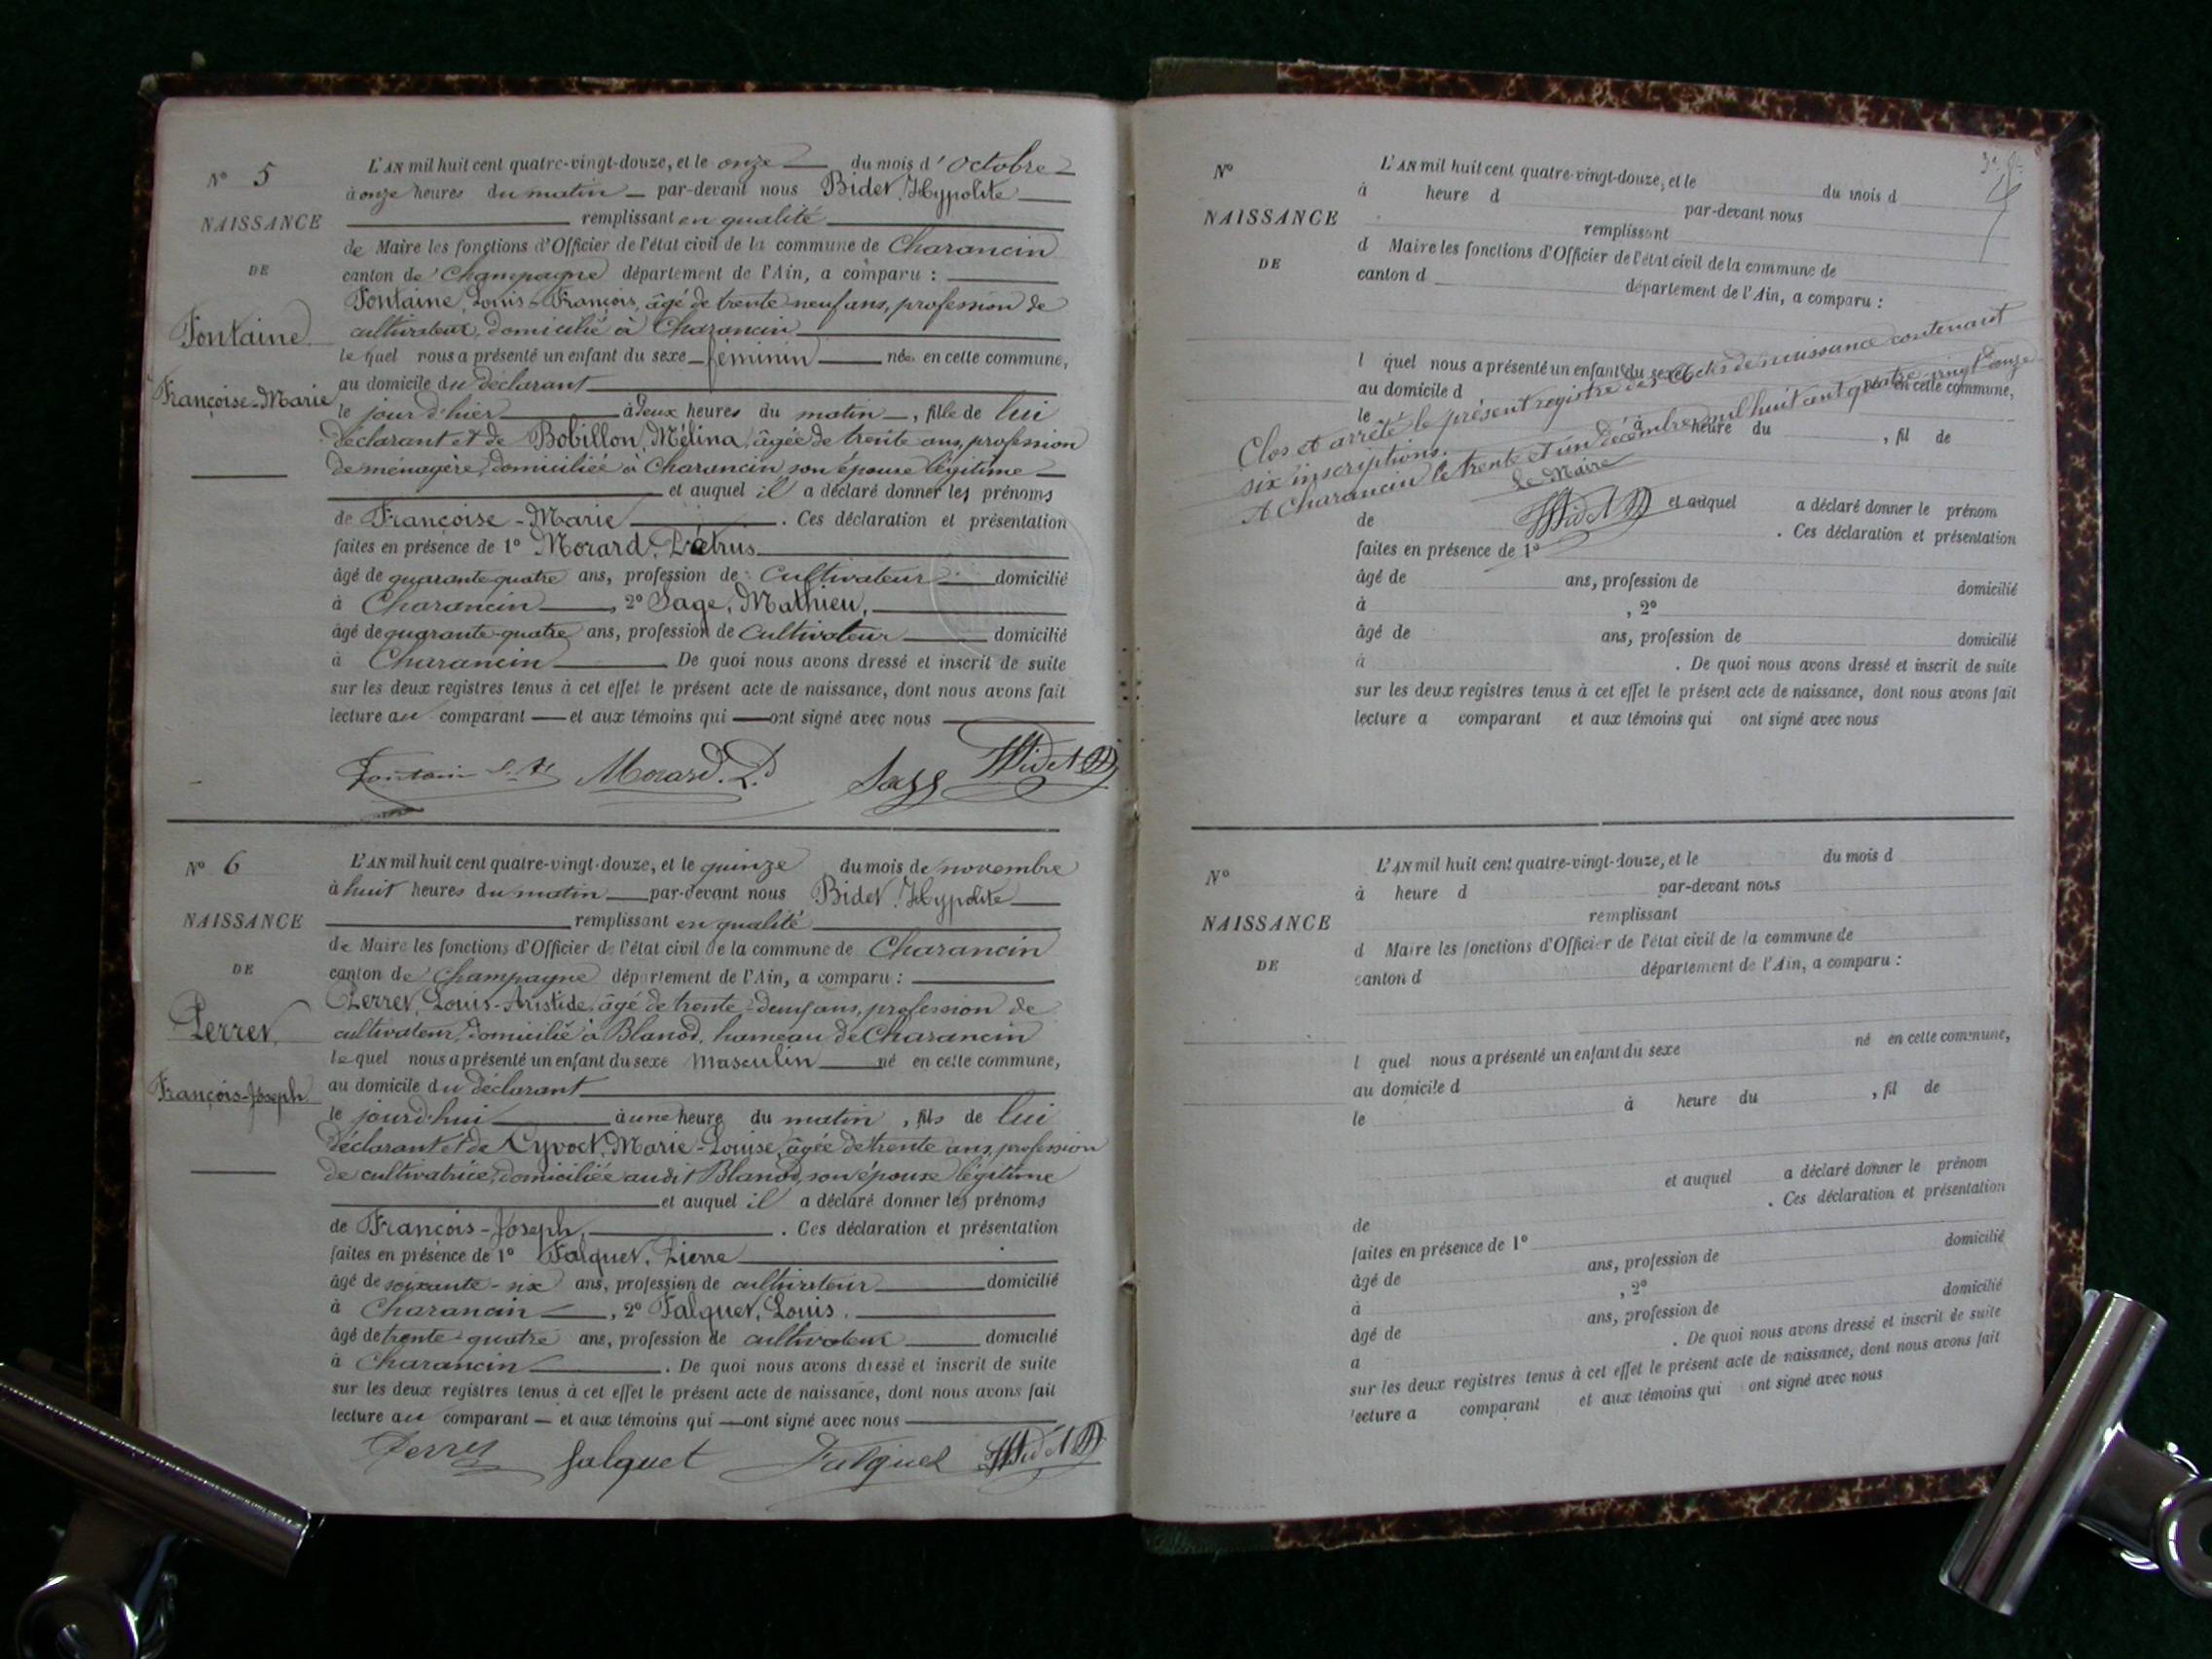 N° 5
NAISSANCE
DE
Fontaine
Françoise-Marie
L'AN mil huit cent quatre-vingt-douze, et le onze du mois d'octobre
à onze heures du matin par-devant nous Bidet, Hypolite
remplissant en qualité
de Maire les fonctions d'Officier de l'état civil de la commune de Charancin
canton de Champagne département de l'Ain, a comparu :
Fontaine, Louis-François, âgé de trente-neuf ans, profession de
cultivateur, domicilié à Charancin
lequel nous a présenté un enfant du sexe féminin née en cette commune,
au domicile du déclarant
le jour d'hier à deux heures du matin, fille de lui
déclarant et de Bobillon, Mélina, âgée de trente ans, profession
de ménagère, domiciliée à Charancin son épouse légitime
et auquel il a déclaré donner les prénoms
de Françoise-Marie. Ces déclaration et présentation
faites en présence de 1° Morard, Pétrus
âgé de quarante-quatre ans, profession de cultivateur domicilié
à Charancin, 2° Sage, Mathieu,
âgé de quarante-quatre ans, profession de cultivateur domicilié
à Charancin. De quoi nous avons dressé et inscrit de suite
sur les deux registres tenus à cet effet le présent acte de naissance, dont nous avons fait
lecture au comparant et aux témoins qui ont signé avec nous
Morard. P.
N° 6
NAISSANCE
DE
Perret,
François-Joseph
L'AN mil huit cent quatre-vingt-douze, et le quinze du mois de novembre
à huit heures du matin par-devant nous Bidet, Hypolite
remplissant en qualité
de Maire les fonctions d'Officier de l'état civil de la commune de Charancin
canton de Champagne département de l'Ain, a comparu :
Perret, Louis-Aristide, âgé de trente-deux ans, profession de
cultivateur, domicilié à Blanod, hameau de Charancin
lequel nous a présenté un enfant du sexe masculin né en cette commune,
au domicile du déclarant
le jourd'hui à une heure du matin, fils de lui
déclarant et de Cyvoct, Marie-Louise, âgée de trente ans, profession
de cultivatrice, domiciliée audit Blanod, son épouse légitime
et auquel il a déclaré donner les prénoms
de François-Joseph,. Ces déclaration et présentation
faites en présence de 1° Falquet, Pierre
âgé de soixante-six ans, profession de cultivateur domicilié
à Charancin, 2° Falquet, Louis.
âgé de trente-quatre ans, profession de cultivateur domicilié
à Charancin. De quoi nous avons dressé et inscrit de suite
sur les deux registres tenus à cet effet le présent acte de naissance, dont nous avons fait
lecture au comparant et aux témoins qui ont signé avec nous
Perret falquet Falquet
N°
NAISSANCE
DE
L'AN mil huit cent quatre-vingt-douze, et le du mois d
à heure d par-devant nous
remplissant
d Maire les fonctions d'Officier de l'état civil de la commune de
canton d département de l'Ain, a comparu :
l quel nous a présenté un enfant du sexe né en cette commune,
au domicile d
le à heure du , fil de
Clos et arrêté le présent registre des actes de naissance contenant
six inscriptions.
A Charancin le trente et un décembre mil huit cent quatre-vingt-douze
Le Maire
et auquel a déclaré donner le prénom
de . Ces déclaration et présentation
faites en présence de 1°
âgé de ans, profession de domicilié
à , 2°
âgé de ans, profession de domicilié
à . De quoi nous avons dressé et inscrit de suite
sur les deux registres tenus à cet effet le présent acte de naissance, dont nous avons fait
lecture a comparant et aux témoins qui ont signé avec nous
N°
NAISSANCE
DE
L'AN mil huit cent quatre-vingt-douze, et le du mois d
à heure d par-devant nous
remplissant
d Maire les fonctions d'Officier de l'état civil de la commune de
canton d département de l'Ain, a comparu :
l quel nous a présenté un enfant du sexe né en cette commune,
au domicile d
le à heure du , fil de
et auquel a déclaré donner le prénom
de . Ces déclaration et présentation
faites en présence de 1°
âgé de ans, profession de domicilié
à , 2°
âgé de ans, profession de domicilié
a . De quoi nous avons dressé et inscrit de suite
sur les deux registres tenus à cet effet le présent acte de naissance, dont nous avons fait
lecture a comparant et aux témoins qui ont signé avec nous